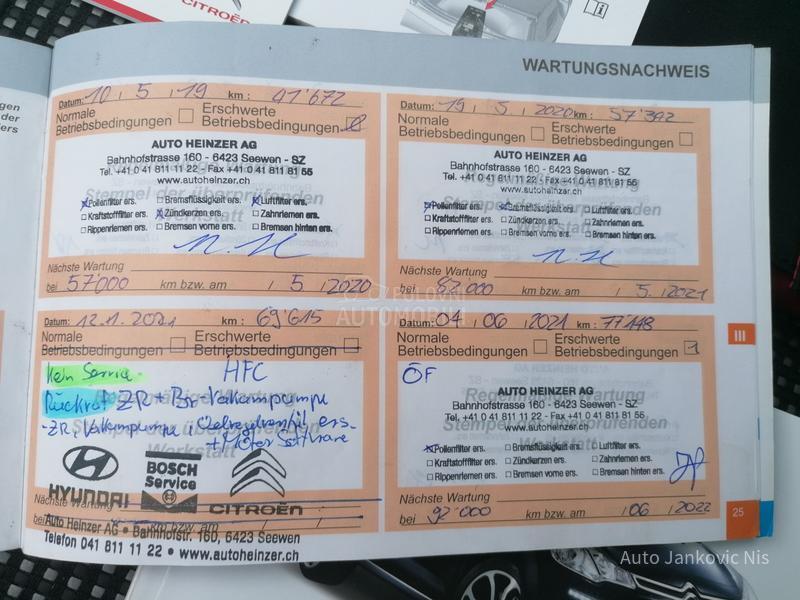 CITROËN
WARTUNGSNACHWEIS
Datum: 10 / 5 / 19 km: 41'672
Normale Betriebsbedingungen
Erschwerte Betriebsbedingungen
AUTO HEINZER AG
Bahnhofstrasse 160 - 6423 Seewen - SZ
Tel. +41 0 41 811 11 22 - Fax +41 0 41 811 81 55
www.autoheinzer.ch
Stempel der überprüfenden Werkstatt
Pollenfilter ers. Bremsflüssigkeit ers. Luftfilter ers.
Kraftstofffilter ers. Zündkerzen ers. Zahnriemen ers.
Rippenriemen ers. Bremsen vorne ers. Bremsen hinten ers.
Nächste Wartung
bei 57'000 km bzw. am / 5 / 2020
Datum: 19 / 5 / 2020 km: 57'392
Normale Betriebsbedingungen
Erschwerte Betriebsbedingungen
AUTO HEINZER AG
Bahnhofstrasse 160 - 6423 Seewen - SZ
Tel. +41 0 41 811 11 22 - Fax +41 0 41 811 81 55
www.autoheinzer.ch
Pollenfilter ers. Bremsflüssigkeit ers. Luftfilter ers.
Kraftstofffilter ers. Zündkerzen ers. Zahnriemen ers.
Rippenriemen ers. Bremsen vorne ers. Bremsen hinten ers.
Nächste Wartung
bei 82'000 km bzw. am / 5 / 2021
Datum: 12.1.2021 km: 69'615
Normale Betriebsbedingungen
Erschwerte Betriebsbedingungen
Kein Service. HFC
Rückruf ZR + Br. Vakumpumpe
- ZR, Vakumpumpe, ers.
+ Motor Software
HYUNDAI
BOSCH Service
CITROËN
Nächste Wartung
bei km bzw. am / /
Auto Heinzer AG • Bahnhofstr. 160, 6423 Seewen
Telefon 041 811 11 22 • www.autoheinzer.ch
Datum: 04 / 06 / 2021 km: 77'148
Normale Betriebsbedingungen
Erschwerte Betriebsbedingungen
ÖF
AUTO HEINZER AG
Bahnhofstrasse 160 - 6423 Seewen - SZ
Tel. +41 0 41 811 11 22 - Fax +41 0 41 811 81 55
www.autoheinzer.ch
Pollenfilter ers. Bremsflüssigkeit ers. Luftfilter ers.
Kraftstofffilter ers. Zündkerzen ers. Zahnriemen ers.
Rippenriemen ers. Bremsen vorne ers. Bremsen hinten ers.
Nächste Wartung
bei 92'000 km bzw. am / 06 / 2022
III
25
POLOVNI AUTOMOBILI
Auto Jankovic Nis